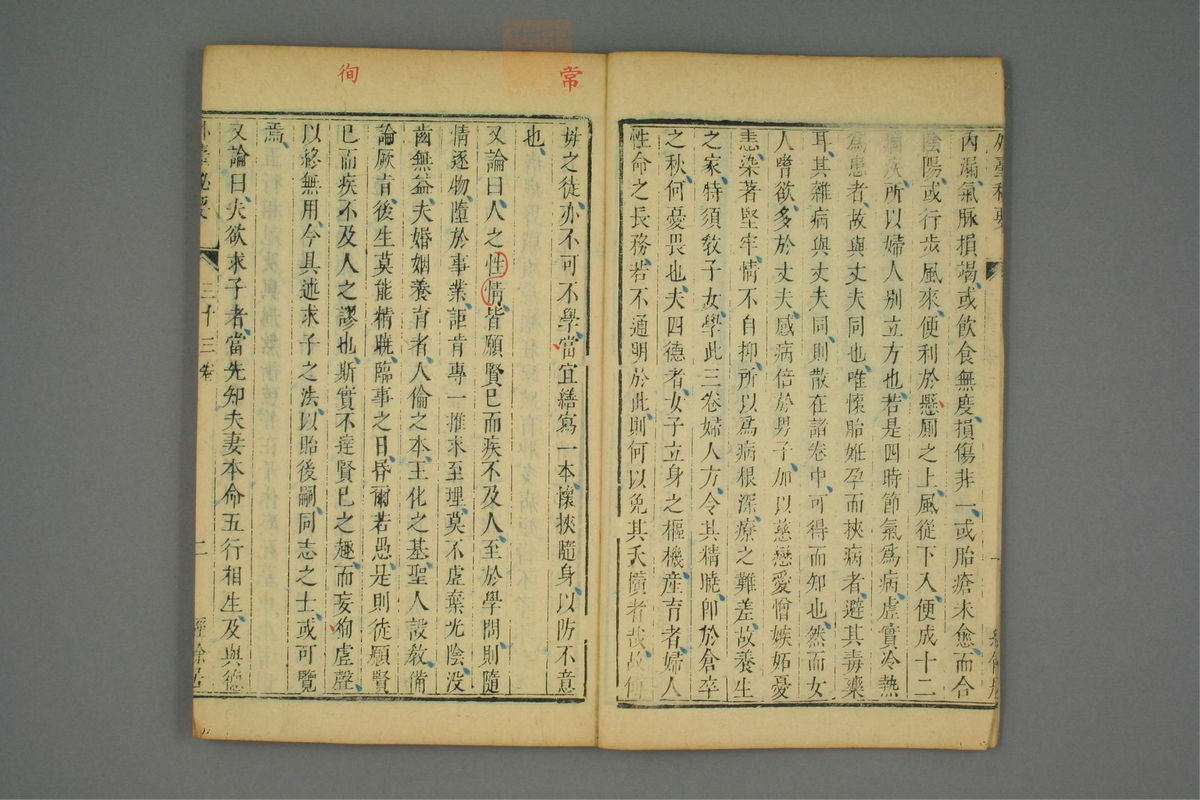 內漏氣脉損竭或飲食無度損傷非一或胎瘡未愈而合
陰陽或行步風來便利於懸厠之上風從下入便成十二
痼疾所以婦人别立方也若是四時節氣為病虚實冷熱
為患者故與丈夫同也唯懷胎姙孕而挾病者避其毒藥
耳其雜病與丈夫同則散在諸卷中可得而知也然而女
人嗜欲多於丈夫感病倍於男子加以慈戀愛憎嫉妬憂
恚染著堅牢情不自抑所以爲病根深療之難差故養生
之家特須敎子女學此三卷婦人方令其精曉卽於倉卒
之秋何憂畏也夫四德者女子立身之樞機產育者婦人
性命之長務若不通明於此則何以免其夭隫者哉故傅
常
徇
母之徒亦不可不學當宜繕寫一本懷挾隨身以防不意
也
又論曰人之性情皆願賢巳而疾不及人至於學問則隨
情逐物墮於事業詎肯專一推來至理莫不虛棄光陰没
齒無益夫婚姻養育者人倫之本王化之基聖人設敎備
論厥旨後生莫能精曉臨事之日昏爾若愚是則徒願賢
巳而疾不及人之謬也斯實不達賢巳之趣而妄徇虛聲
以終無用今具述求子之法以貽後嗣同志之士或可覽
焉
又論曰夫欲求子者當先知夫妻本命五行相生及與德
外臺秘要
三十三卷
二
經餘居